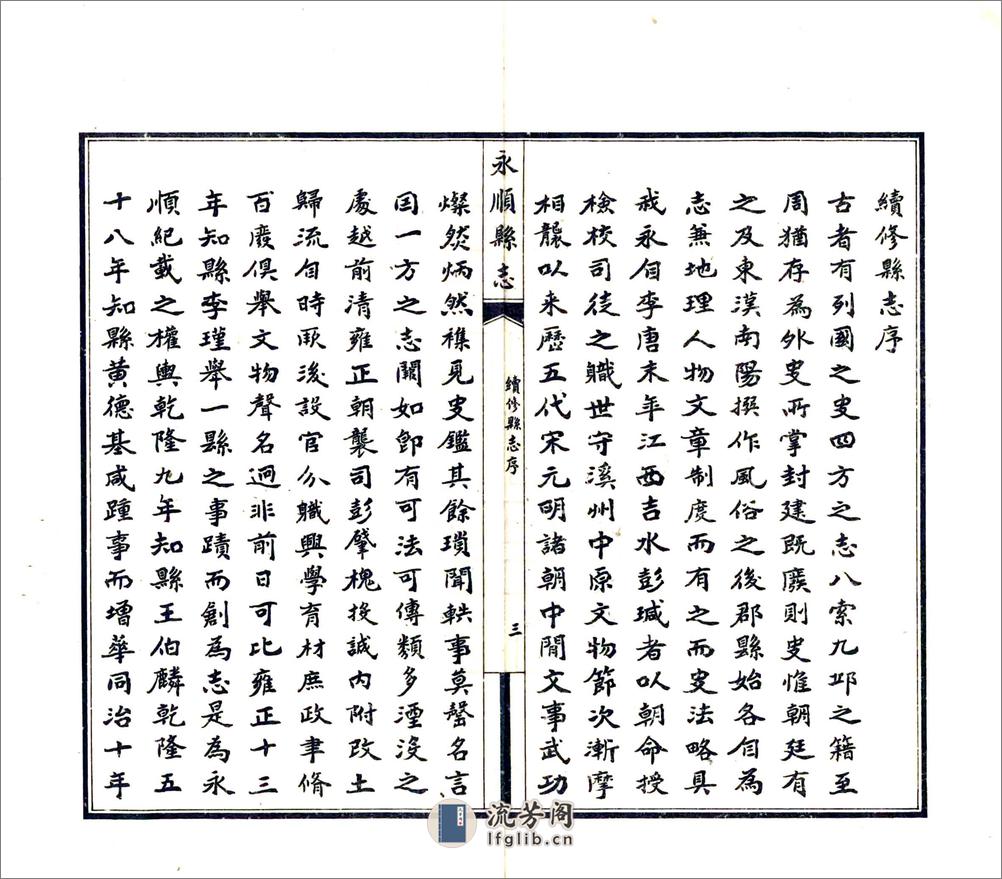 續修縣志序
古者有列國之史四方之志八索九邱之籍至
周猶存為外史所掌封建既廢則史惟朝廷有
之及東漢南陽撰作風俗之後郡縣始各自為
志兼地理人物文章制度而有之而史法略具
我永自李唐末年江西吉水彭瑊者以朝命授
檢校司徒之職世守溪州中原文物節次漸摩
相襲以来歷五代宋元明諸朝中間文事武功
永順縣志
續修縣志序
三
燦然炳然穕見史鑑其餘瑣聞軼事莫罄名言
囯一方之志闕如卽有可法可傳類多湮沒之
處越前清雍正朝襲司彭肇槐投誠內附改土
歸流自時厥後設官分職興學育材庶政聿脩
百廢俱舉文物聲名迥非前日可比雍正十三
年知縣李瑾舉一縣之事蹟而創為志是為永
順紀載之權輿乾隆九年知縣王伯麟乾隆五
十八年知縣黃德基咸踵事而增華同治十年
流芳阁
lfglib.cn